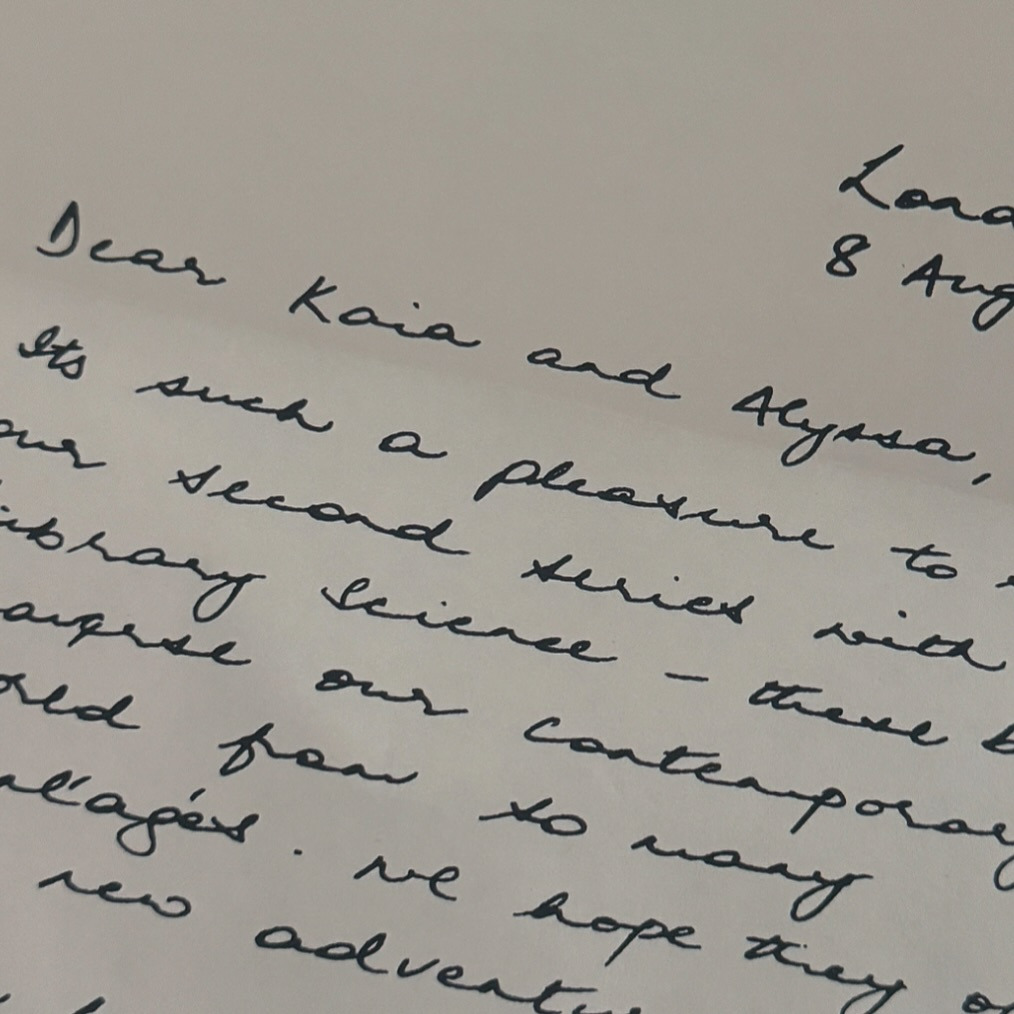 Lond
8 Aug
Dear Kaia and Alyssa,
Its such a pleasure to
our second series with
library Science - these b
our contemporary
from so many
we hope they
new adventu